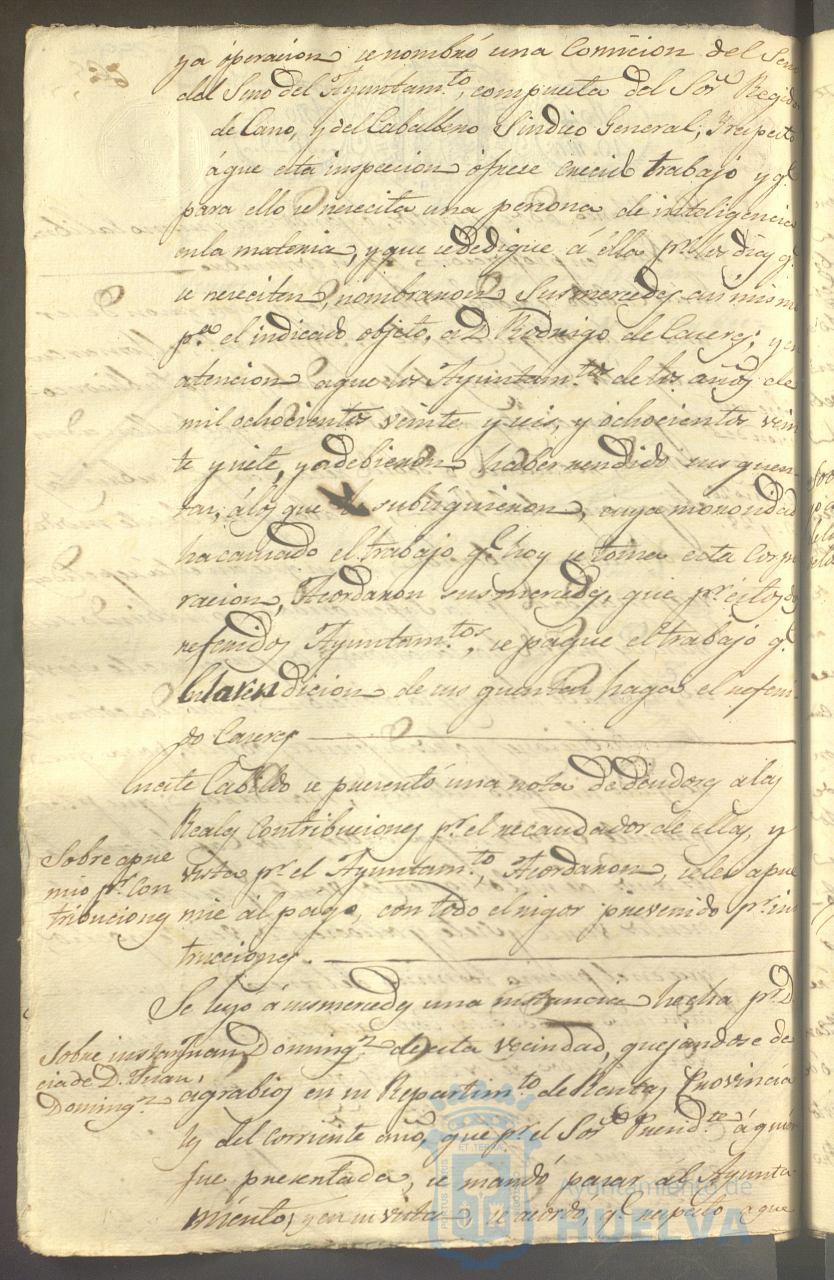 ya operacion se nombró una Comicion del Seno
del Seno del Ayuntam.to, compuesta del Sor. Regidor
de Cano, y del Caballero Sindico General; Y respecto
á que esta inspeccion ofrece crecido trabajo y q.e
para ello se necesita una persona de inteligencia
en la materia, y que se dedique á ella p.r los dias q.e
se necesiten, nombraron Susmercedes asi mismo
p.a el indicado objeto, a D. Rodrigo de Caceres; y en
atencion a que los Ayuntam.tos de los años de
mil ochocientos veinte y seis, y ochocientos vein
te y siete, ya debieron haber rendido sus quen-
tas, á los que subsiguieron, cuya morosidad
ha causado el trabajo q.e hoy se toma esta Corpo
racion, Acordaron susmercedes, que p.r estos dos
referidos Ayuntam.tos, se pague el trabajo q.e
en la rendicion de sus quentas haga el referi
do Caceres
En este Cabildo se presentó una nota de Deudores a las
Reales Contribuciones p.r el recaudador de ellas, y
Sobre apre
mio p.r Con
tribuciones
vista p.r el Ayuntam.to, Acordaron, se les apre
mie al pago, con todo el rigor prevenido p.r ins
trucciones.
Se leyo á susmercedes una instancia hecha p.r D.
Sobre instan
cia de D. Juan
Doming.z
Juan Doming.z de esta vecindad, quejandose de
agrabios en su Repartim.to de Rentas Provincia
les del corriente año, que p.r el Sor. Presid.te á quien
fue presentada, se mandó pasar al Ayunta
miento; y en su vista, se acordo, q.e respecto a que
Ayuntamiento de
HUELVA